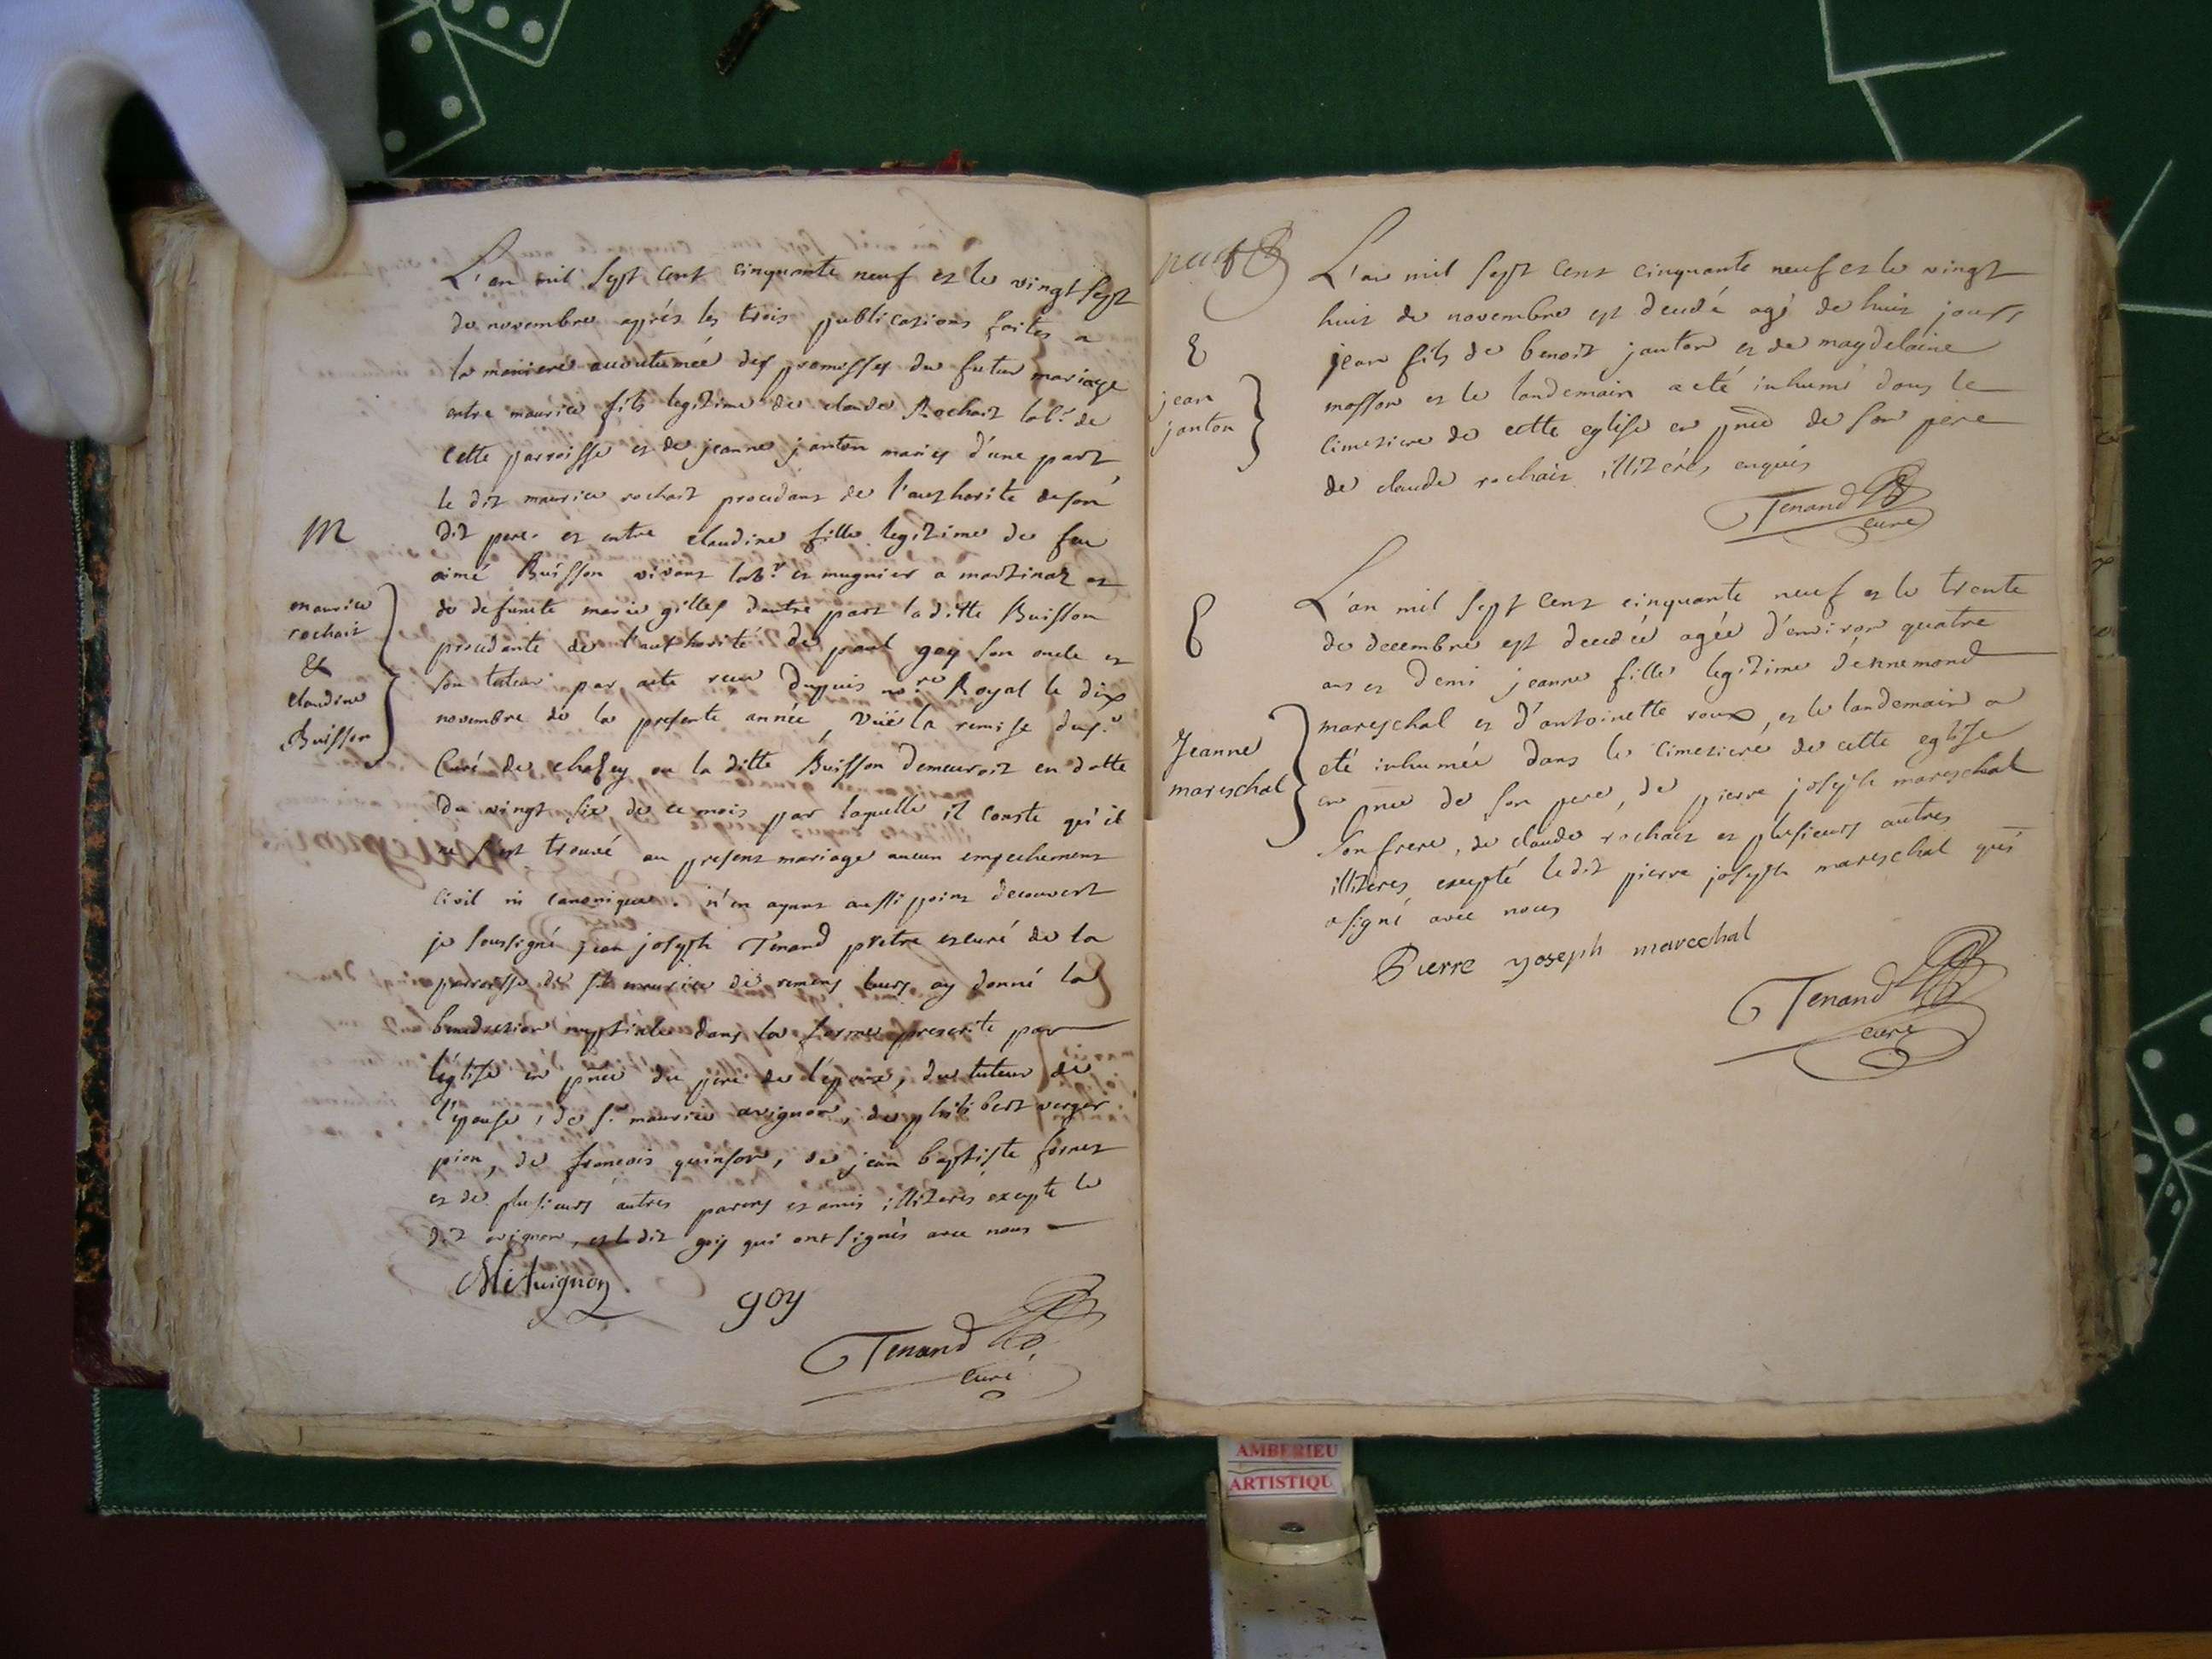 L'an mil sept cent cinquante neuf et le vingt sept
de novembre aprés les trois publications faites a
la maniere accoutumée des promesses du futur mariage
entre maurice fils legitime de claude Rochait lab.r de
cette parroisse et de jeanne janton mariés d'une part
le dit maurice rochait procedant de l'authorité de son
dit pere. et entre claudine fille legitime de feu
aimé Buisson vivant lab.r et mugnier a martinaz et
de defuncte marie gilles d'autre part la ditte Buisson
procedante de l'authorité de paul goy son oncle et
son tuteur par acte receu Dupuis no.re Royal le dix
novembre de la presente année, vüe la remise du s.r
Curé de chasey ou la ditte Buisson demeuroit en datte
du vingt six de ce mois par laquelle il conste qu'il
ne s'est trouvé au present mariage aucun empechement
civil ni canonique. n'en ayant aussi point decouvert
je soussigné jean joseph Tenand prêtre et curé de la
parroisse de st maurice de remens leurs ay donné la
benediction nuptiale dans la forme prescrite par
l'église en pnce du pere de l'epoux, du tuteur de
l'epouse, de s.r maurice avignon, de philibert verger
pion, de françois quinson, de jean baptiste
et de plusieurs autres parens et amis illiterés excepté le
dit avignon, et le dit goy qui ont signés avec nous
M Avignon
goy
Tenand
curé
M
maurice
rochait
&
claudine
Buisson
L'an mil sept cent cinquante neuf et le vingt
huit de novembre est decedé agé de huit jours
jean fils de benoit janton et de magdelaine
masson et le landemain a eté inhumé dans le
cimetiere de cette eglise en pnce de son pere
de claude rochait illiterés enquis
Tenand
curé
jean
janton
L'an mil sept cent cinquante neuf et le trente
de decembre est decedée agée d'environ quatre
ans et demi jeanne fille legitime d'ennemond
mareschal et d'antoinette roux, et le landemain a
eté inhumée dans le cimetiere de cette eglise
en pnce de son pere, de pierre joseph mareschal
son frere, de claude rochait et plusieurs autres
illiteres excepté le dit pierre joseph mareschal qui
a signé avec nous
Pierre yoseph marechal
Tenand
curé
Jeanne
mareschal
AMBERIEU
ARTISTIQU